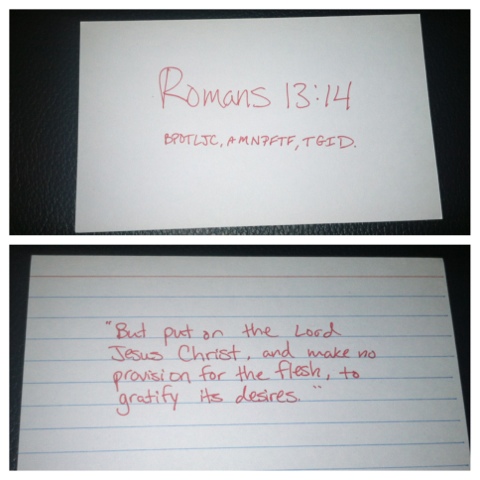 Romans 13:14
BPOTLJC, AMNPFTF, TGID.
"But put on the Lord
Jesus Christ, and make no
provision for the flesh, to
gratify its desires."